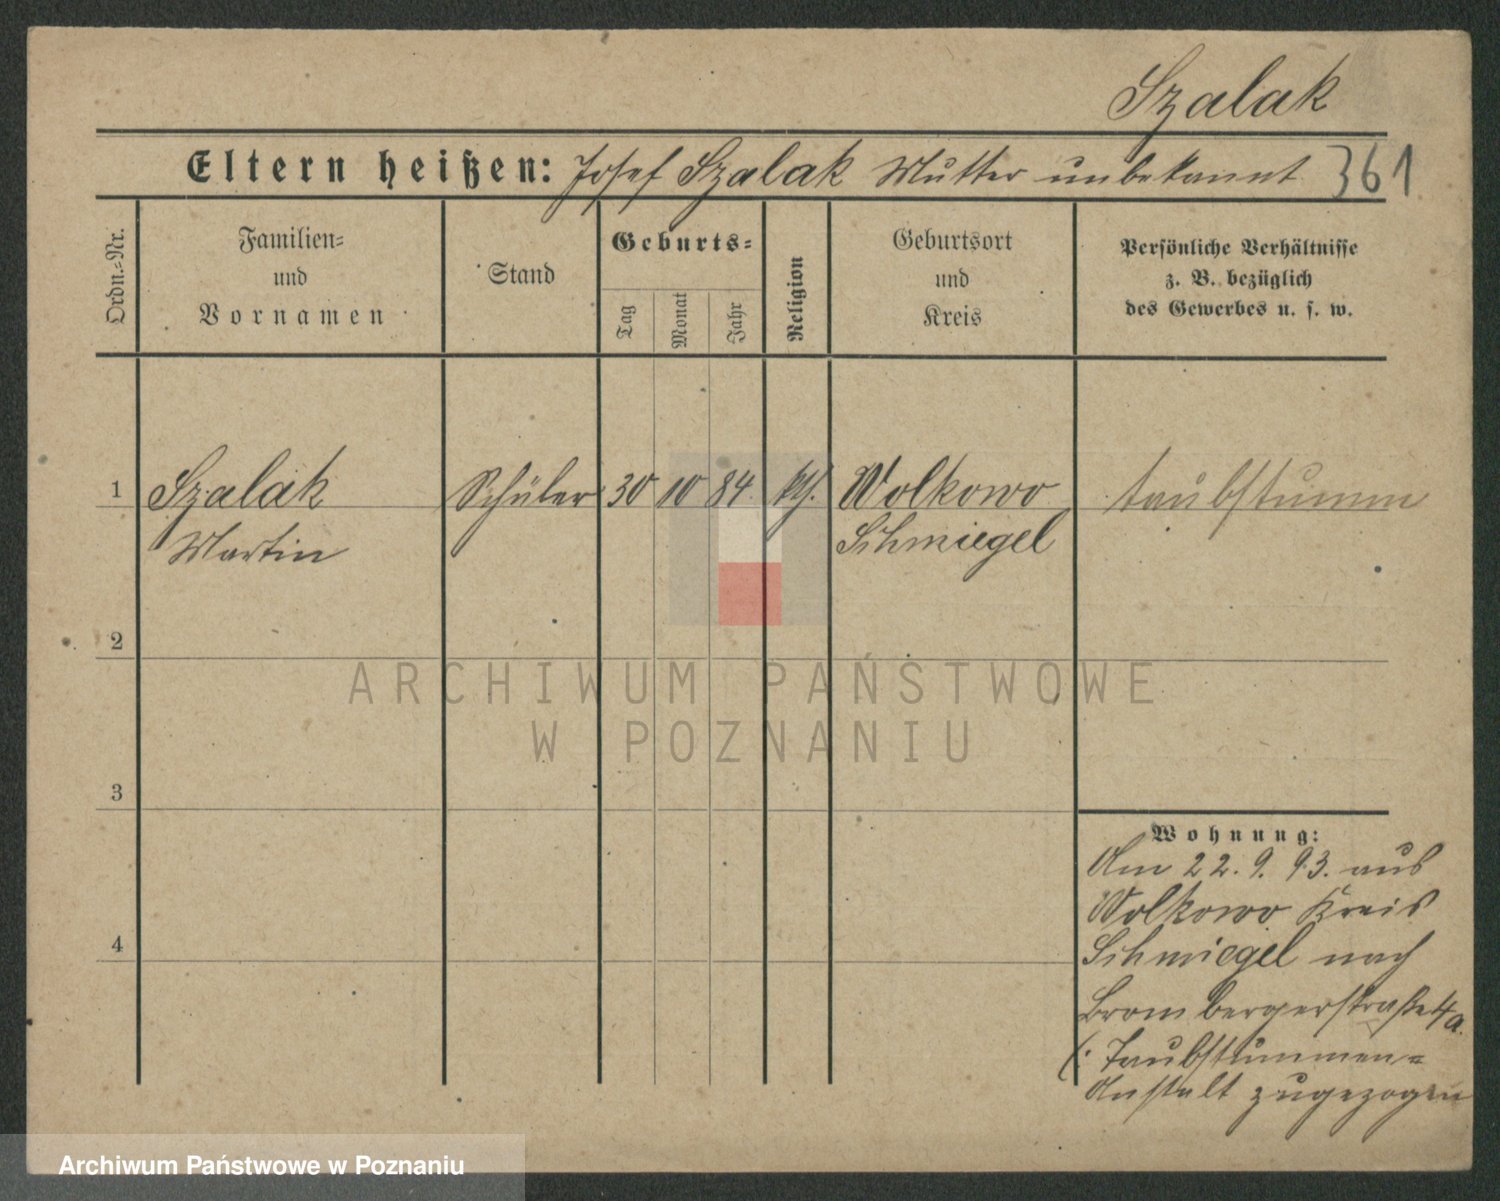 Szalak
Eltern heißen: Josef Szalak Mutter unbekannt 361
Ordn.=Nr.
Familien=
und
Vornamen
Stand
Geburts=
Tag
Monat
Jahr
Religion
Geburtsort
und
Kreis
Persönliche Verhältnisse
z. B. bezüglich
des Gewerbes u. s. w.
1 Szalak Schüler 30 10 84. kth. Wolkowo taubstumm
Martin Schmiegel
2
ARCHIWUM PAŃSTWOWE
W POZNANIU
3
Wohnung:
Am 22. 9. 93. aus
Wolkowo Kreis
4 Schmiegel nach
Brombergerstraße 4a.
(: Taubstummen=
Anstalt zugezogen
Archiwum Państwowe w Poznaniu